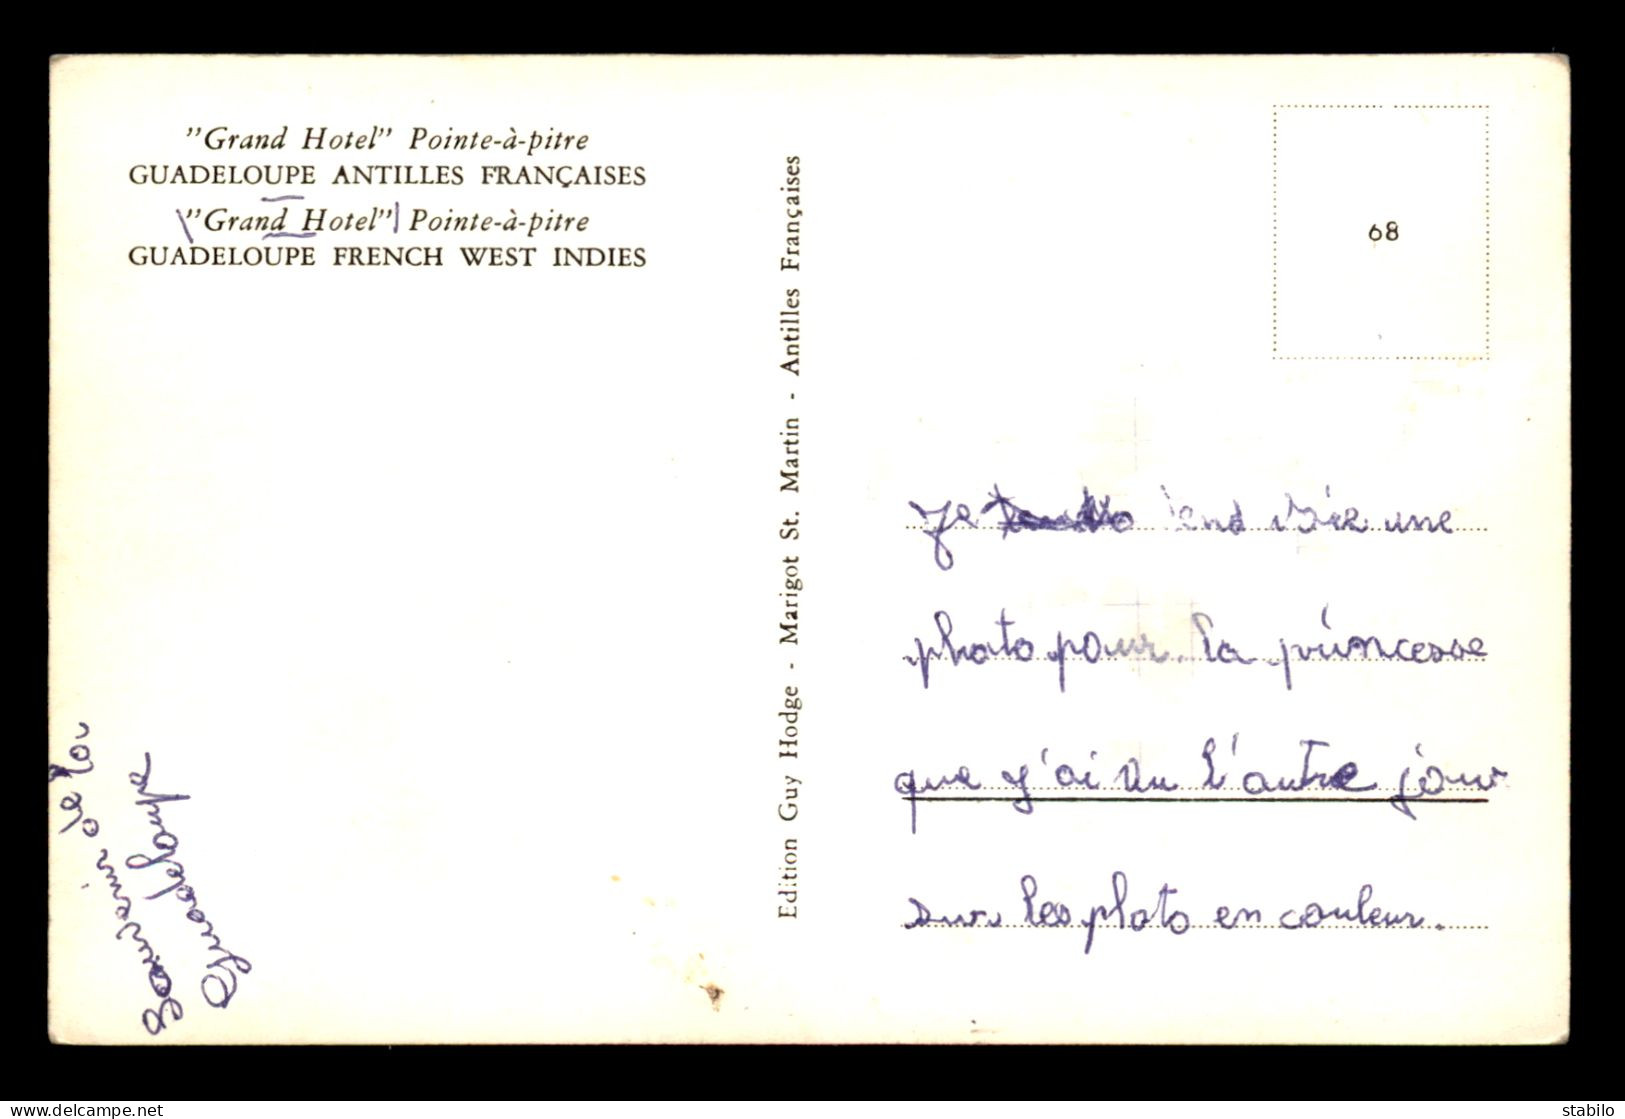 "Grand Hotel" Pointe-à-pitre
GUADELOUPE ANTILLES FRANÇAISES
"Grand Hotel" Pointe-à-pitre
GUADELOUPE FRENCH WEST INDIES
Souvenir de la
Guadeloupe
Edition Guy Hodge - Marigot St. Martin - Antilles Françaises
68
Je une
photo pour la princesse
que j'ai vu l'autre jour
sur les photo en couleur.
www.delcampe.net
stabilo